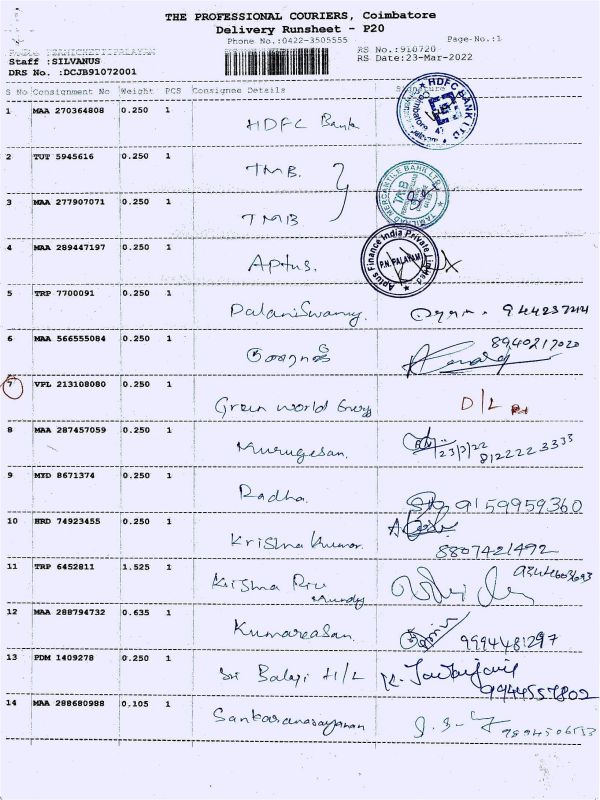 THE PROFESSIONAL COURIERS, Coimbatore
Delivery Runsheet - P20
Phone No.:0422-3505555 Page-No.:1
Staff :SILVANUS RS No.:910720
DRS No. :DCJB91072001 RS Date:23-Mar-2022
S No Consignment No Weight PCS Consignee Details Signature
1 MAA 270364808 0.250 1 HDFC Bank HDFC BANK LTD
2 TUT 5945616 0.250 1 TMB. TAMILNAD MERCANTILE BANK LTD. TMB
3 MAA 277907071 0.250 1 TMB
4 MAA 289447197 0.250 1 Aptus. Aptus Finance India Private Limited P.N. PALAYAM
5 TRP 7700091 0.250 1 PalaniSwamy.
6 MAA 566555084 0.250 1 8940217020
7 VPL 213108080 0.250 1 Green world Energy D/L
8 MAA 287457059 0.250 1 Murugesan. 23/3/22 8122223333
9 MYD 8671374 0.250 1 Radha. 9159959360
10 HRD 74923455 0.250 1 Krishna Kumar. 8807421492
11 TRP 6452811 1.525 1 Krishna
12 MAA 288794732 0.635 1 Kumaresan. 9994481297
13 PDM 1409278 0.250 1 Sri Balaji H/L 9944557802
14 MAA 288680988 0.105 1 Sankaranarayanan